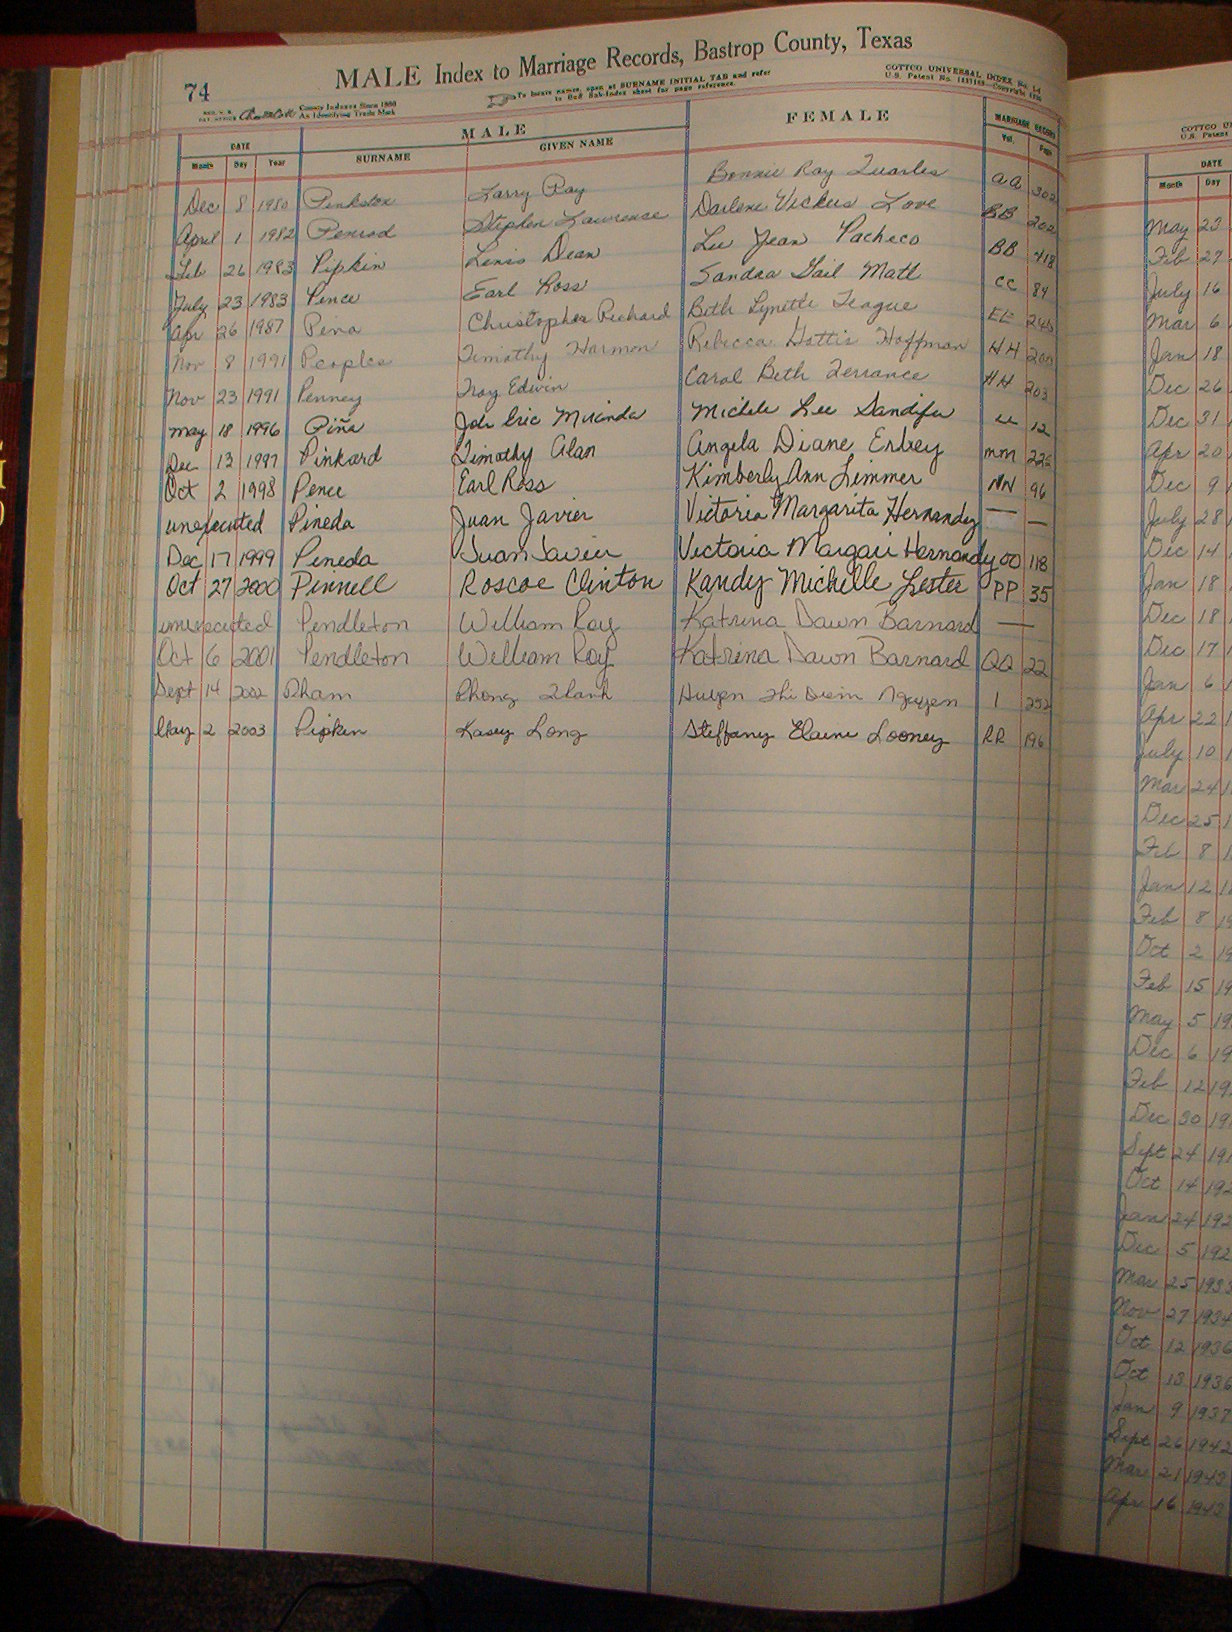 74 MALE Index to Marriage Records, Bastrop County, Texas
REG. U. S. PAT. OFFICE County Indexes Since 1888 As Identifying Trade Mark
To locate names, open at SURNAME INITIAL TAB and refer
to Red Sub-Index sheet for page reference.
COTTCO UNIVERSAL INDEX No. 14
U.S. Patent No. Copyright
DATE MALE FEMALE MARRIAGE RECORD
Month Day Year SURNAME GIVEN NAME Vol. Page
Dec 8 1980 Pinkston Larry Ray Bonnie Ray Quarles AA 302
April 1 1982 Penrod Stephen Lawrence Darlene Vickers Love BB 202
Feb 26 1983 Pipkin Lewis Dean Lee Jean Pacheco BB 418
July 23 1983 Pence Earl Ross Sandra Gail Matl CC 84
Apr 26 1987 Pina Christopher Richard Beth Lynette Teague EE
Nov 8 1991 Peoples Timothy Harmon Rebecca Gattis Hoffman HH
Nov 23 1991 Penney Troy Edwin Carol Beth Terrance HH 203
May 18 1996 Piña Joe Eric Mirinda Michele Lee Sandifer LL 12
Dec 13 1997 Pinkard Timothy Alan Angela Diane Erbey MM
Oct 2 1998 Pence Earl Ross Kimberly Ann Limmer NN 96
unexecuted Pineda Juan Javier Victoria Margarita Hernandez — —
Dec 17 1999 Peneda Juan Javier Victoria Margari Hernandez OO 118
Oct 27 2000 Pinnell Roscoe Clinton Kandy Michelle Lester PP 35
unexecuted Pendleton William Roy Katrina Dawn Barnard —
Oct 6 2001 Pendleton William Roy Katrina Dawn Barnard QQ 22
Sept 14 2002 Pham Phong Thanh Huyen Thi Diem Nguyen 1 252
May 2 2003 Pipkin Kasey Long Steffany Elaine Looney RR 196
COTTCO
U.S. Patent
DATE
Month Day
May 23
Feb 27
July 16
Mar 6
Jan 18
Dec 26
Dec 31
Apr 20
Dec 9
July 28
Dec 14
Jan 18
Dec 18
Dec 17
Jan 6
Apr 22
July 10
Mar 24
Dec 25
Feb 8
Jan 12
Feb 8
Oct 2
Feb 15
May 5
Dec 6
Feb 12
Dec 30
Sept 24
Oct 14
Jan 24
Dec 5
Mar 25
Nov 27 1934
Oct 12 1936
Oct 13 1936
Jan 9 1937
Sept 26 1942
Mar 21 1943
Apr 16 1943